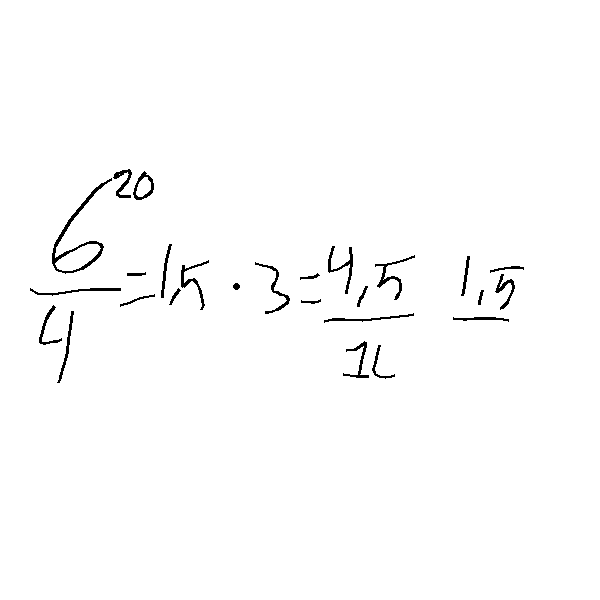 6²⁰
4
=1,5 · 3 = 4,5 1,5